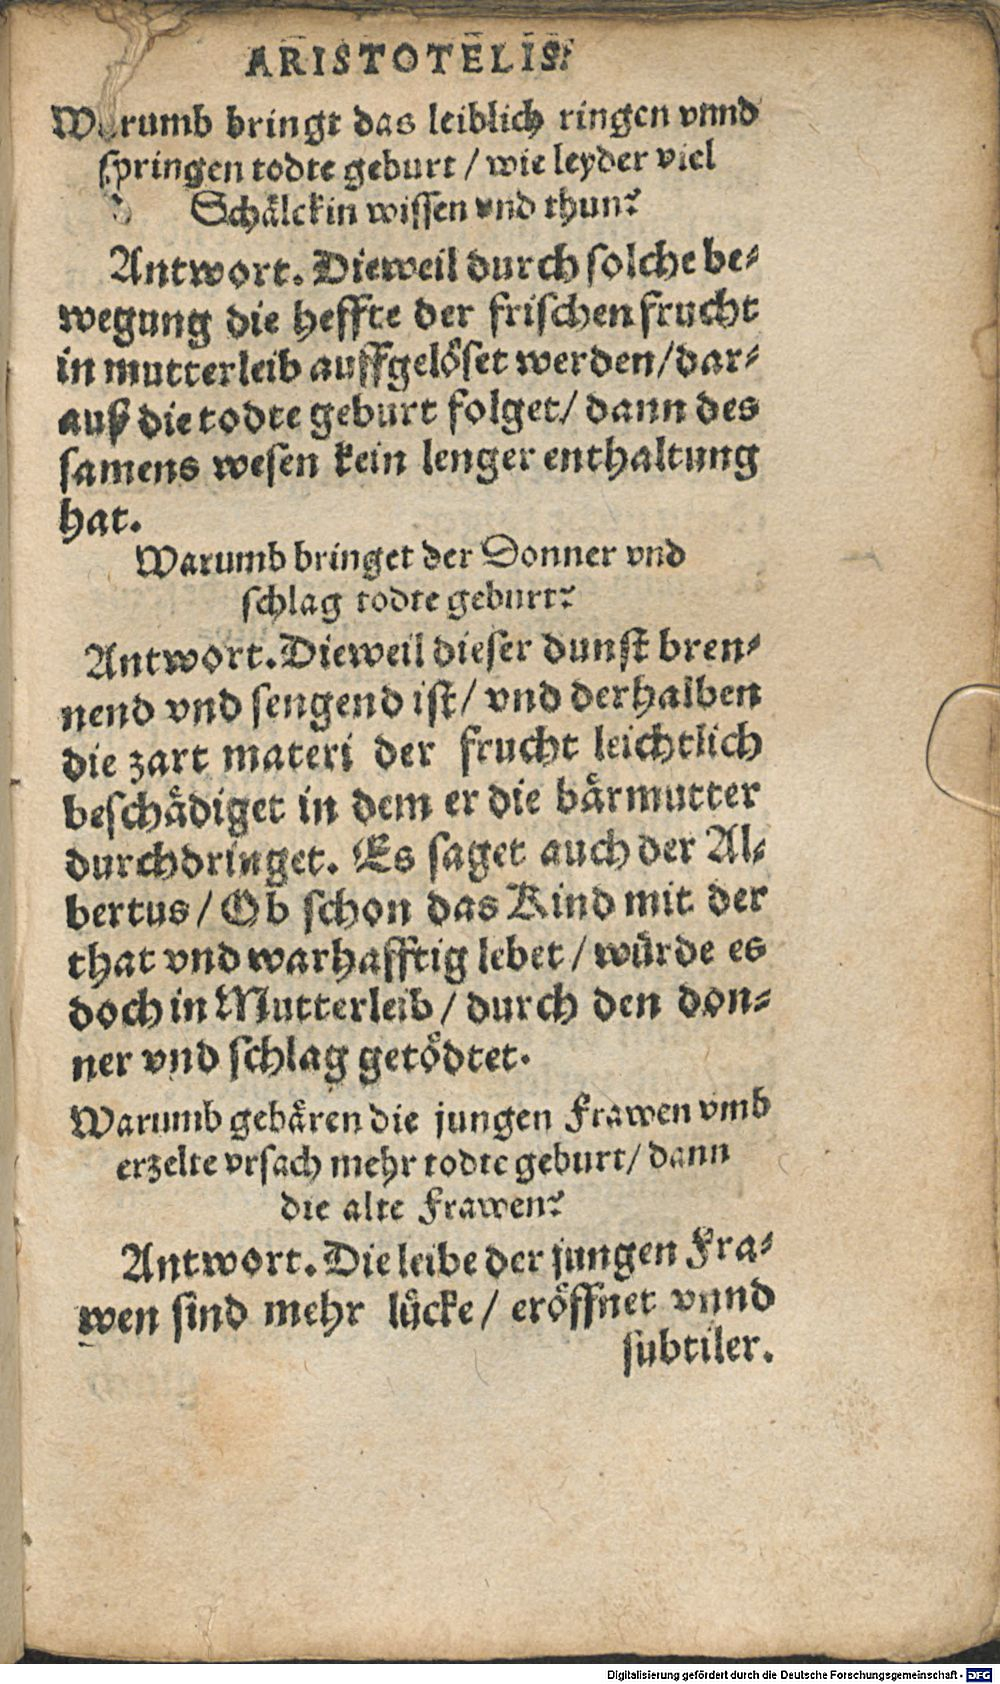 ARISTOTELIS.
Warumb bringt das leiblich ringen vnnd
springen todte geburt / wie leyder viel
Schälckin wissen vnd thun?
Antwort. Dieweil durch solche be-
wegung die heffte der frischen frucht
in mutterleib auffgelöset werden / dar-
auß die todte geburt folget / dann des
samens wesen kein lenger enthaltung
hat.
Warumb bringet der Donner vnd
schlag todte geburt?
Antwort. Dieweil dieser dunst bren-
nend vnd sengend ist / vnd derhalben
die zart materi der frucht leichtlich
beschädiget in dem er die bärmutter
durchdringet. Es saget auch der Al-
bertus / Ob schon das Kind mit der
that vnd warhafftig lebet / würde es
doch in Mutterleib / durch den don-
ner vnd schlag getödtet.
Warumb gebären die jungen Frawen vmb
erzelte vrsach mehr todte geburt / dann
die alte Frawen?
Antwort. Die leibe der jungen Fra-
wen sind mehr lücke / eröffnet vnnd
subtiler.
Digitalisierung gefördert durch die Deutsche Forschungsgemeinschaft - DFG